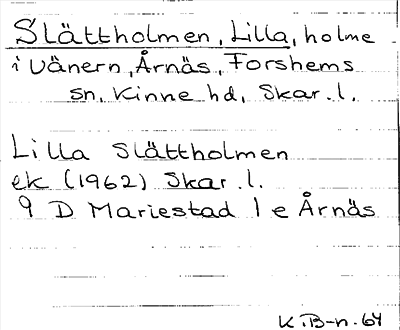 Slättholmen, Lilla, holme
i Vänern, Årnäs, Forshems
sn, Kinne hd, Skar. l.
Lilla Slättholmen
ek (1962) Skar. l.
9 D Mariestad 1 e Årnäs
K.B-n. 64